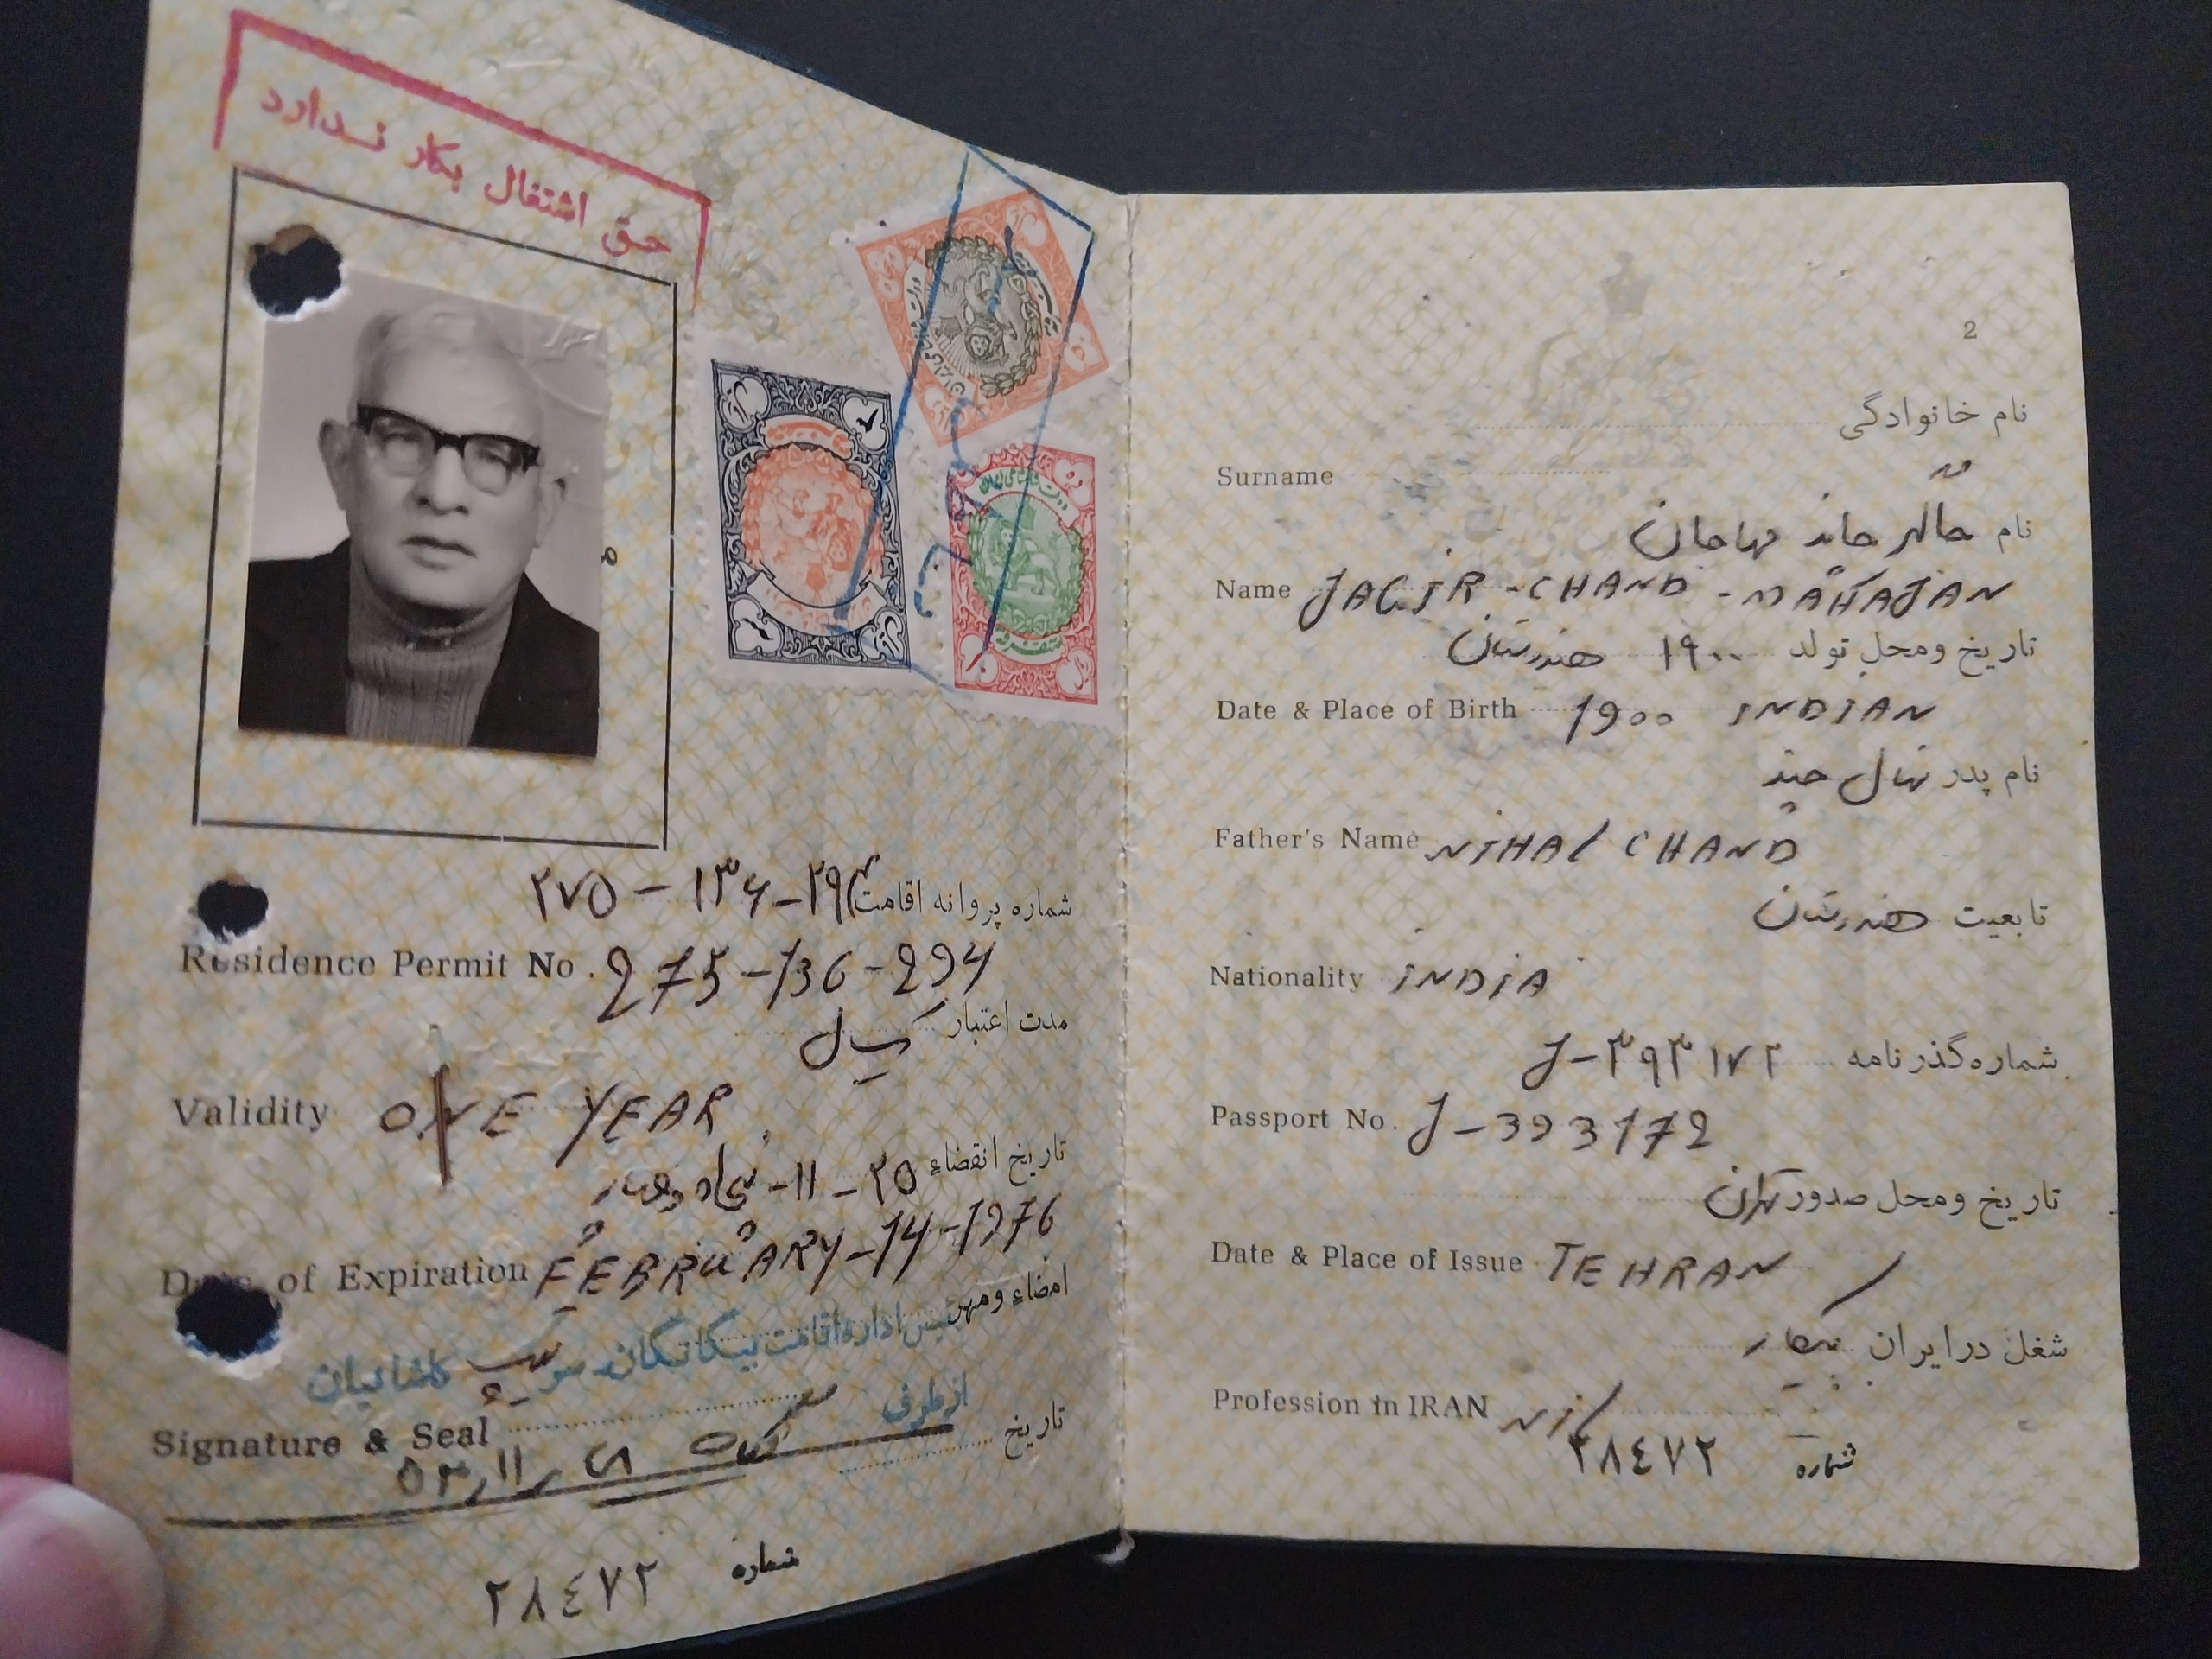 حق اشتغال بکار ندارد
شماره پروانه اقامت ۲۷۵ - ۱۳۶ - ۲۹۴
Residence Permit No. 275-136-294
مدت اعتبار یکسال
Validity ONE YEAR
تاریخ انقضاء ۲۵ - ۱۱ -
Date of Expiration FEBRUARY-14-1976
امضاء و مهر
رئیس اداره اقامت بیگانگان - سرتیپ کاشانیان
از طرف
Signature & Seal
تاریخ
شماره ۲۸٤۷۲
2
نام خانوادگی
Surname
نام جاگیر چاند مهاجان
Name JAGIR-CHAND-MAHAJAN
تاریخ ومحل تولد ۱۹۰۰ هندوستان
Date & Place of Birth 1900 INDIAN
نام پدر نهال چند
Father's Name NIHAL CHAND
تابعیت هندوستان
Nationality INDIA
شماره گذرنامه J-۳۹۳۱۷۲
Passport No. J-393172
تاریخ ومحل صدور تهران
Date & Place of Issue TEHRAN
شغل در ایران بیکار
Profession in IRAN Nil
شماره ۲۸٤۷۲